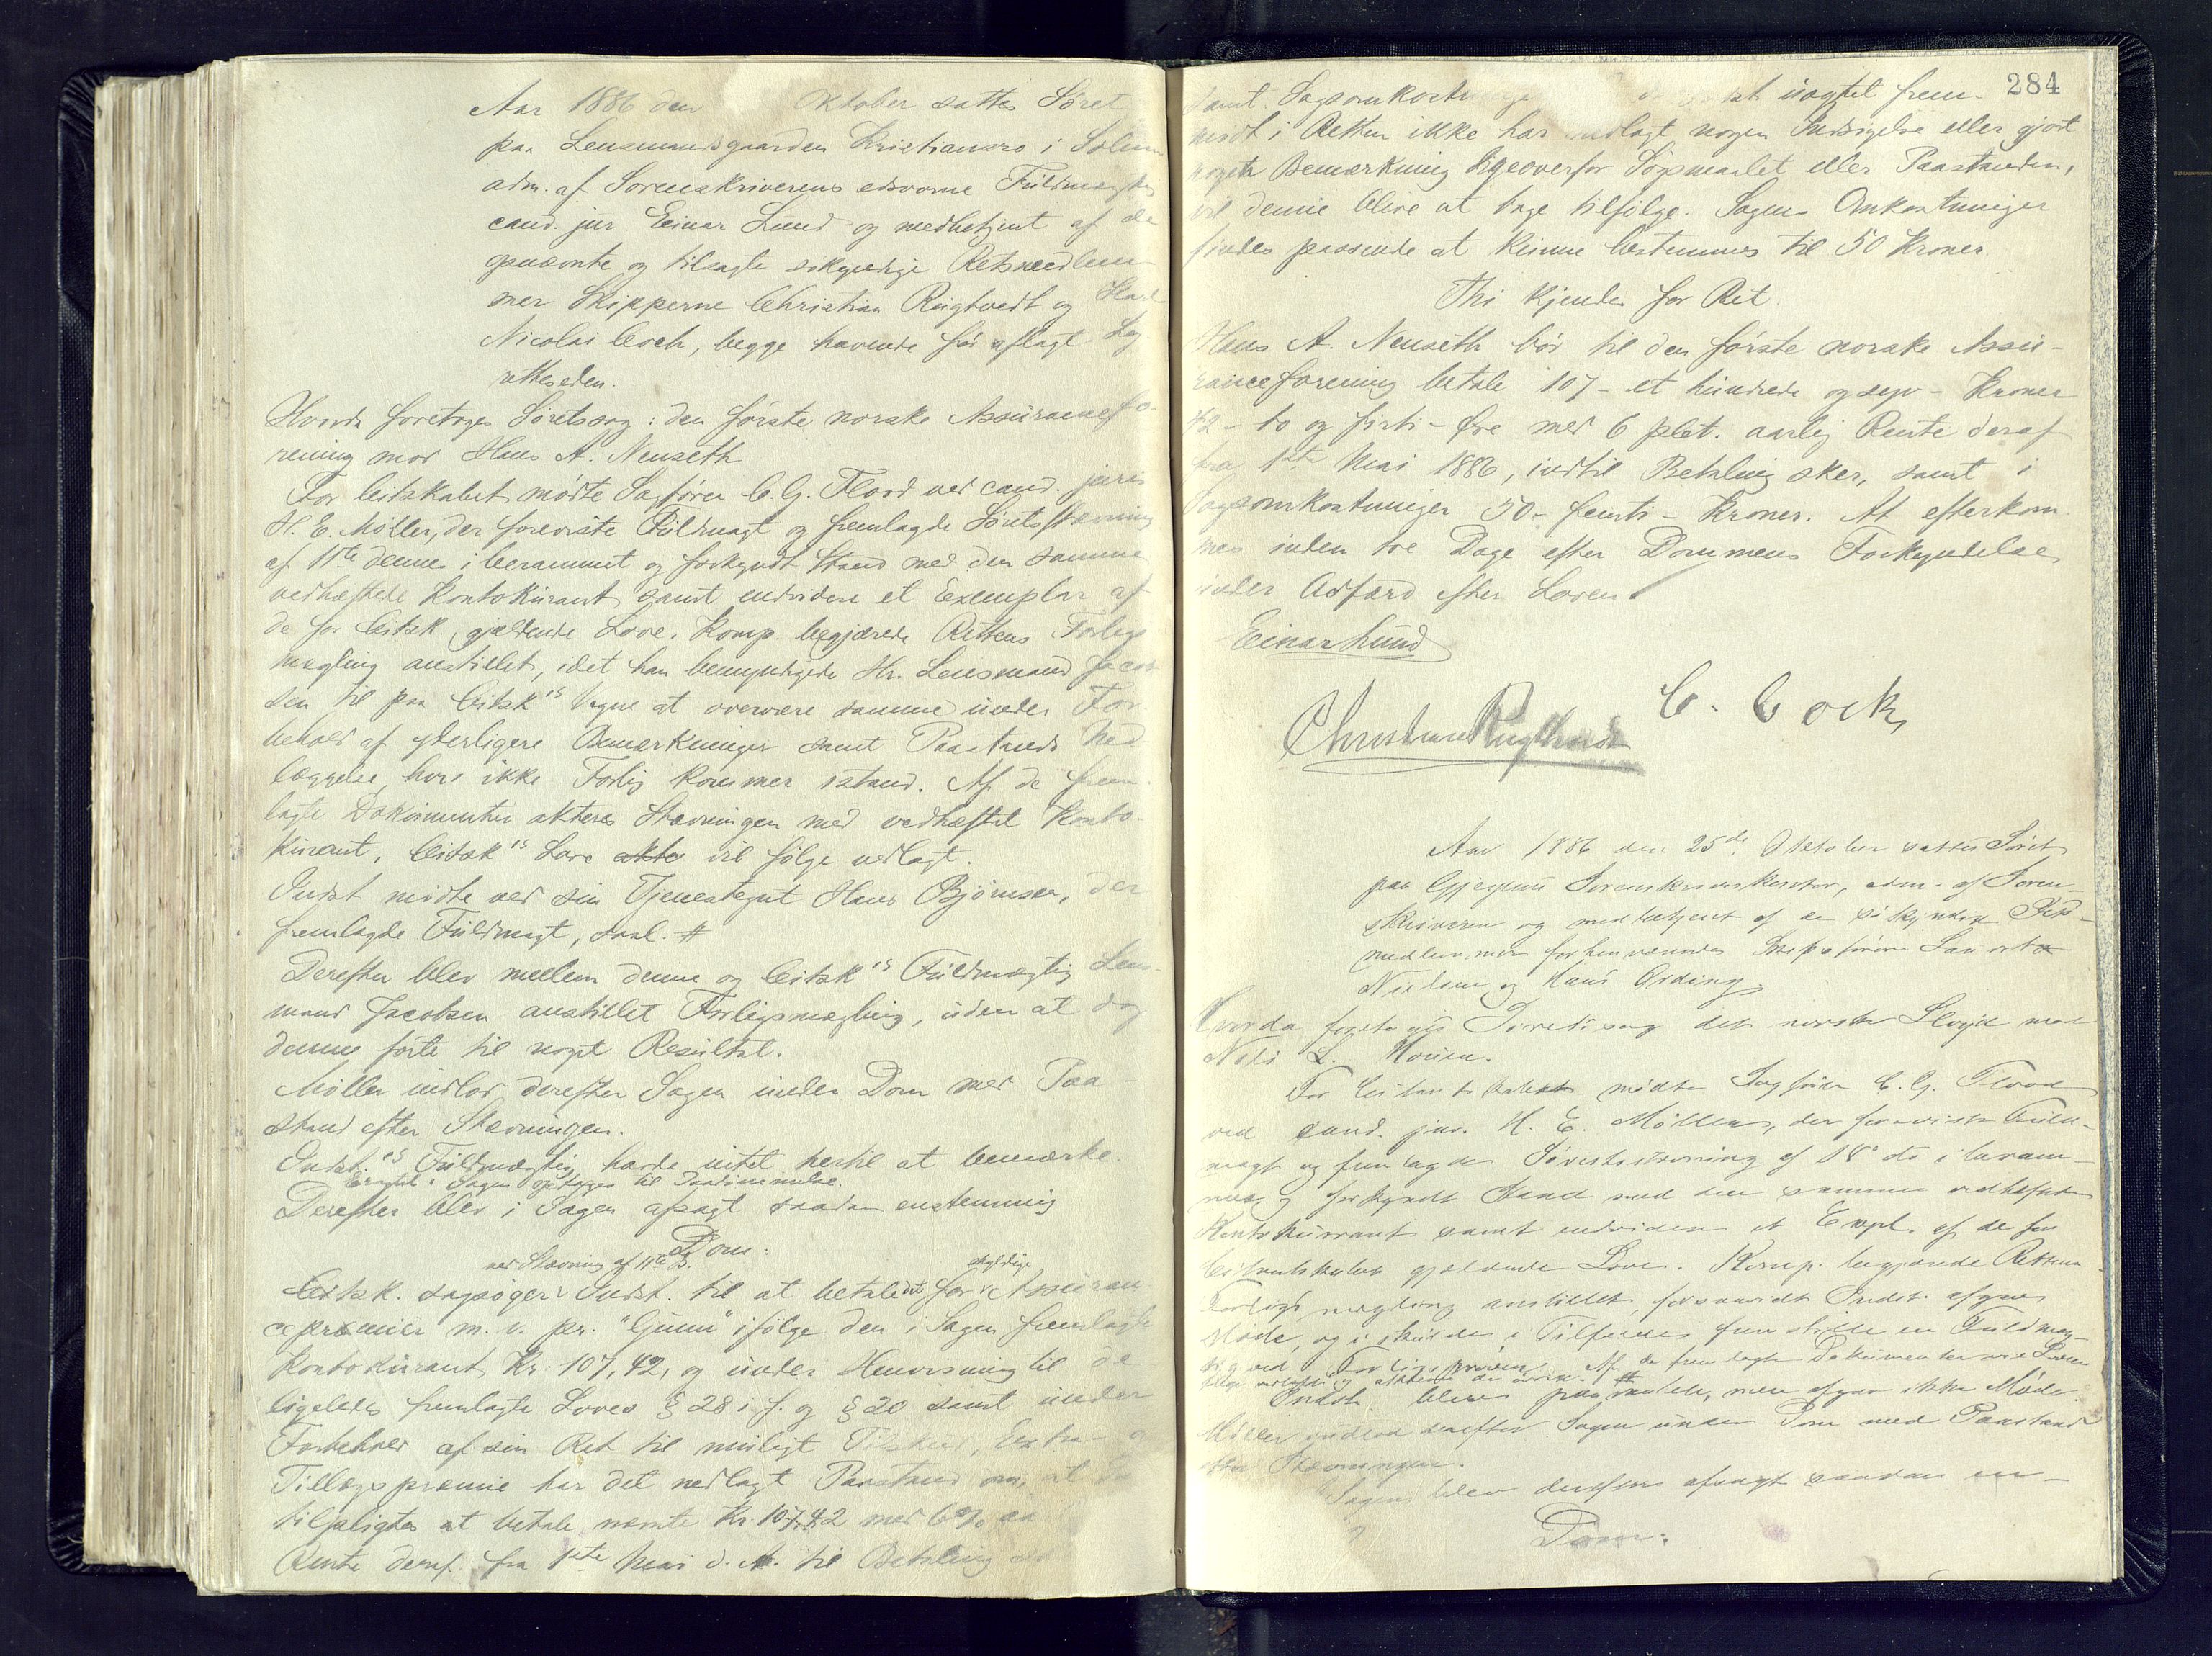 Aar 1886 den Oktober sattes Söret
paa Lensmandsgaarden Kristiansro i Solum
adm. af Sorenskriverens edsvorne Fuldmægtig
cand. jur. Einar Lund og medbetjent af de
opnævnte og tilsagte sökyndige Retsmedlem
mer Skipperne Christian Rugtvedt og
Nicolai Cock, begge havende för aflagt Lag
retteseden.
Hvorda foretoges Söretssag: den förste norske Assurancefo-
rening mod Hans A. Neuseth
For Citskabet mödte Sagförer C. G. Flood ved cand. juris
H. E. Möller, der foreviste Fuldmagt og fremlagde Söretsstævning
af 11te dennes i berammet og forkyndt Stand med den samme
vedhæftede Kontokurant samt endvidere et Exemplar af
de for Citsk. gjældende Love. Komp. begjærede Rettens Forligs
mægling anstillet, idet han bemyndigede Hr. Lensmand Jacob
sen til paa Citsk's Vegne at overvære samme under For
behold af yderligere Bemærkninger samt Paastands Ned
læggelse, hvis ikke Forlig kommer istand. Af de frem-
lagte Dokumenter akteres Stævningen med vedhæftet Konto-
kurant, Citsk's Love akte vil følge vedlagt.
Indst mödte ved sin Tjenestegut Hans Björnsen, der
fremlagde Fuldmagt, saal. #
Derefter blev mellem denne og Citsk's Fuldmægtig Lens-
mand Jacobsen anstillet Forligsmægling, uden at dog
denne förte til noget Resultat.
Möller indlod derefter Sagen under Dom med Paa-
stand efter Stævningen.
Indst.'s Fuldmægtig havde intet hertil at bemærke.
Eragtet: Sagen optages til Paadömmelse.
Derefter blev i Sagen afsagt saadan enstemmig
Dom:
ved Stævning af 11te ds. skyldige
Citsk. sagsöger Indst. til at betale det for Assuran-
cepræmier m. v. pr. "Gunu" ifölge den i Sagen fremlagte
Kontokurant, Kr. 107,42, og under Henvisning til de
ligeledes fremlagte Loves § 28 i. f. og § 20 samt under
Forbehold af sin Ret til muligt Tilskud, Extra- og
Tillægspræmie har det nedlagt Paastand om, at
tilpligtes at betale nævnte Kr. 107,42 med 6% aa
Rente deraf fra 1ste Mai d. A. til Betaling
284
samt Sagsomkostninger uagtet frem-
mödt i Retten ikke har nedlagt nogen Indsigelse eller gjort
nogen Bemærkning ligeoverfor Sögsmaalet eller Paastanden,
vil denne blive at tage tilfölge. Sagens Omkostninger
findes passende at kunne bestemmes til 50 Kroner.
Thi kjendes for Ret
Hans A. Neuseth bör til den förste norske Assu-
ranceforening betale 107 - et hundrede og syv - Kroner
42 - to og firti - Öre med 6 pCt. aarlig Rente deraf
fra 1ste Mai 1886, indtil Betaling sker, samt i
Sagsomkostninger 50 - femti - Kroner. At efterkom-
mes inden tre Dage efter Dommens Forkyndelse,
under Adfærd efter Loven.
Einar Lund
C. Cock,
Christian Rugtvedt
Aar 1886 den 25de Oktober sattes Söret
paa Gjerpens Sorenskriverkontor, adm. af Soren-
skriveren og medbetjent af de sökyndige Rets-
medlemmer forhenværende Skibsförere
Nielsen og Hans Ording.
Hvorda foretoges Söretssag det norske Lloyd mod
Nils L. Houen.
For Citantskabet mödte Sagförer C. G. Flood
ved cand. jur. H. E. Möller, der foreviste Fuld-
magt og fremlagde Söretsstævning af 18de ds i beram-
met og forkyndt Stand med den samme vedhæftede
Kontokurant samt endvidere et Expl. af de for
Citantskabet gjældende Love. Komp. begjærede Rettens
Forligsmægling anstillet, forsaavidt Indst. afgiver
Möde, og i Tilfælde fremstille en Fuldmæg-
tig ved Forligspröven. Af de fremlagte Dokumenter vil Lovene
følge vedlagt og akteres de övrige. #
Indst. blev paaraabt, men afgav ikke Möde.
Möller indlod derefter Sagen under Dom med Paastand
efter Stævningen.
Sagen blev derefter afsagt saadan en-
Dom: